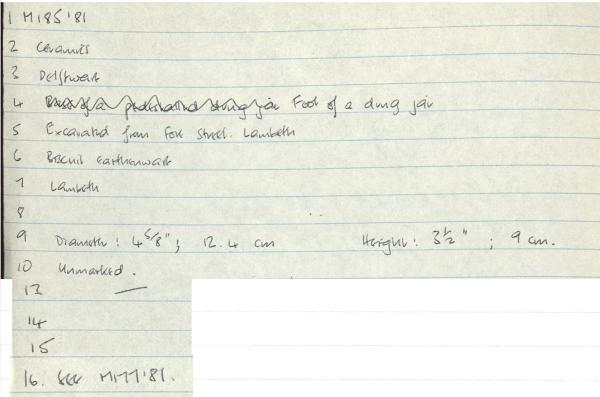 1 M185'81
2 Ceramics
3 Delftware
4 Foot of a drug jar
5 Excavated from Fore Street. Lambeth
6 Biscuit earthenware
7 Lambeth
8
9 Diameter: 4 5/8"; 12.4 cm Height: 3 1/2"; 9 cm.
10 Unmarked.
13 —
14
15
16. See M177'81.